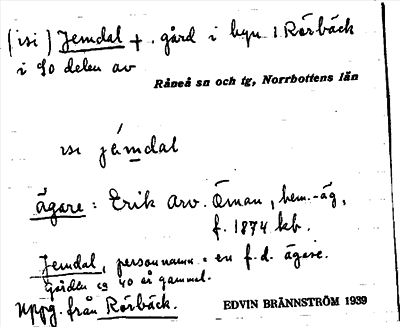 (isi) Jemdal + . gård i byn 1 Rörbäck
i SO delen av
Råneå sn och tg, Norrbottens län
isi jámdal
ägare : Erik Arv. Öman, hem.-äg,
f. 1874 kb.
Jemdal, personnamn : en f.d. ägare.
gården ca 40 år gammal.
Uppg. från Rörbäck.
EDVIN BRÄNNSTRÖM 1939